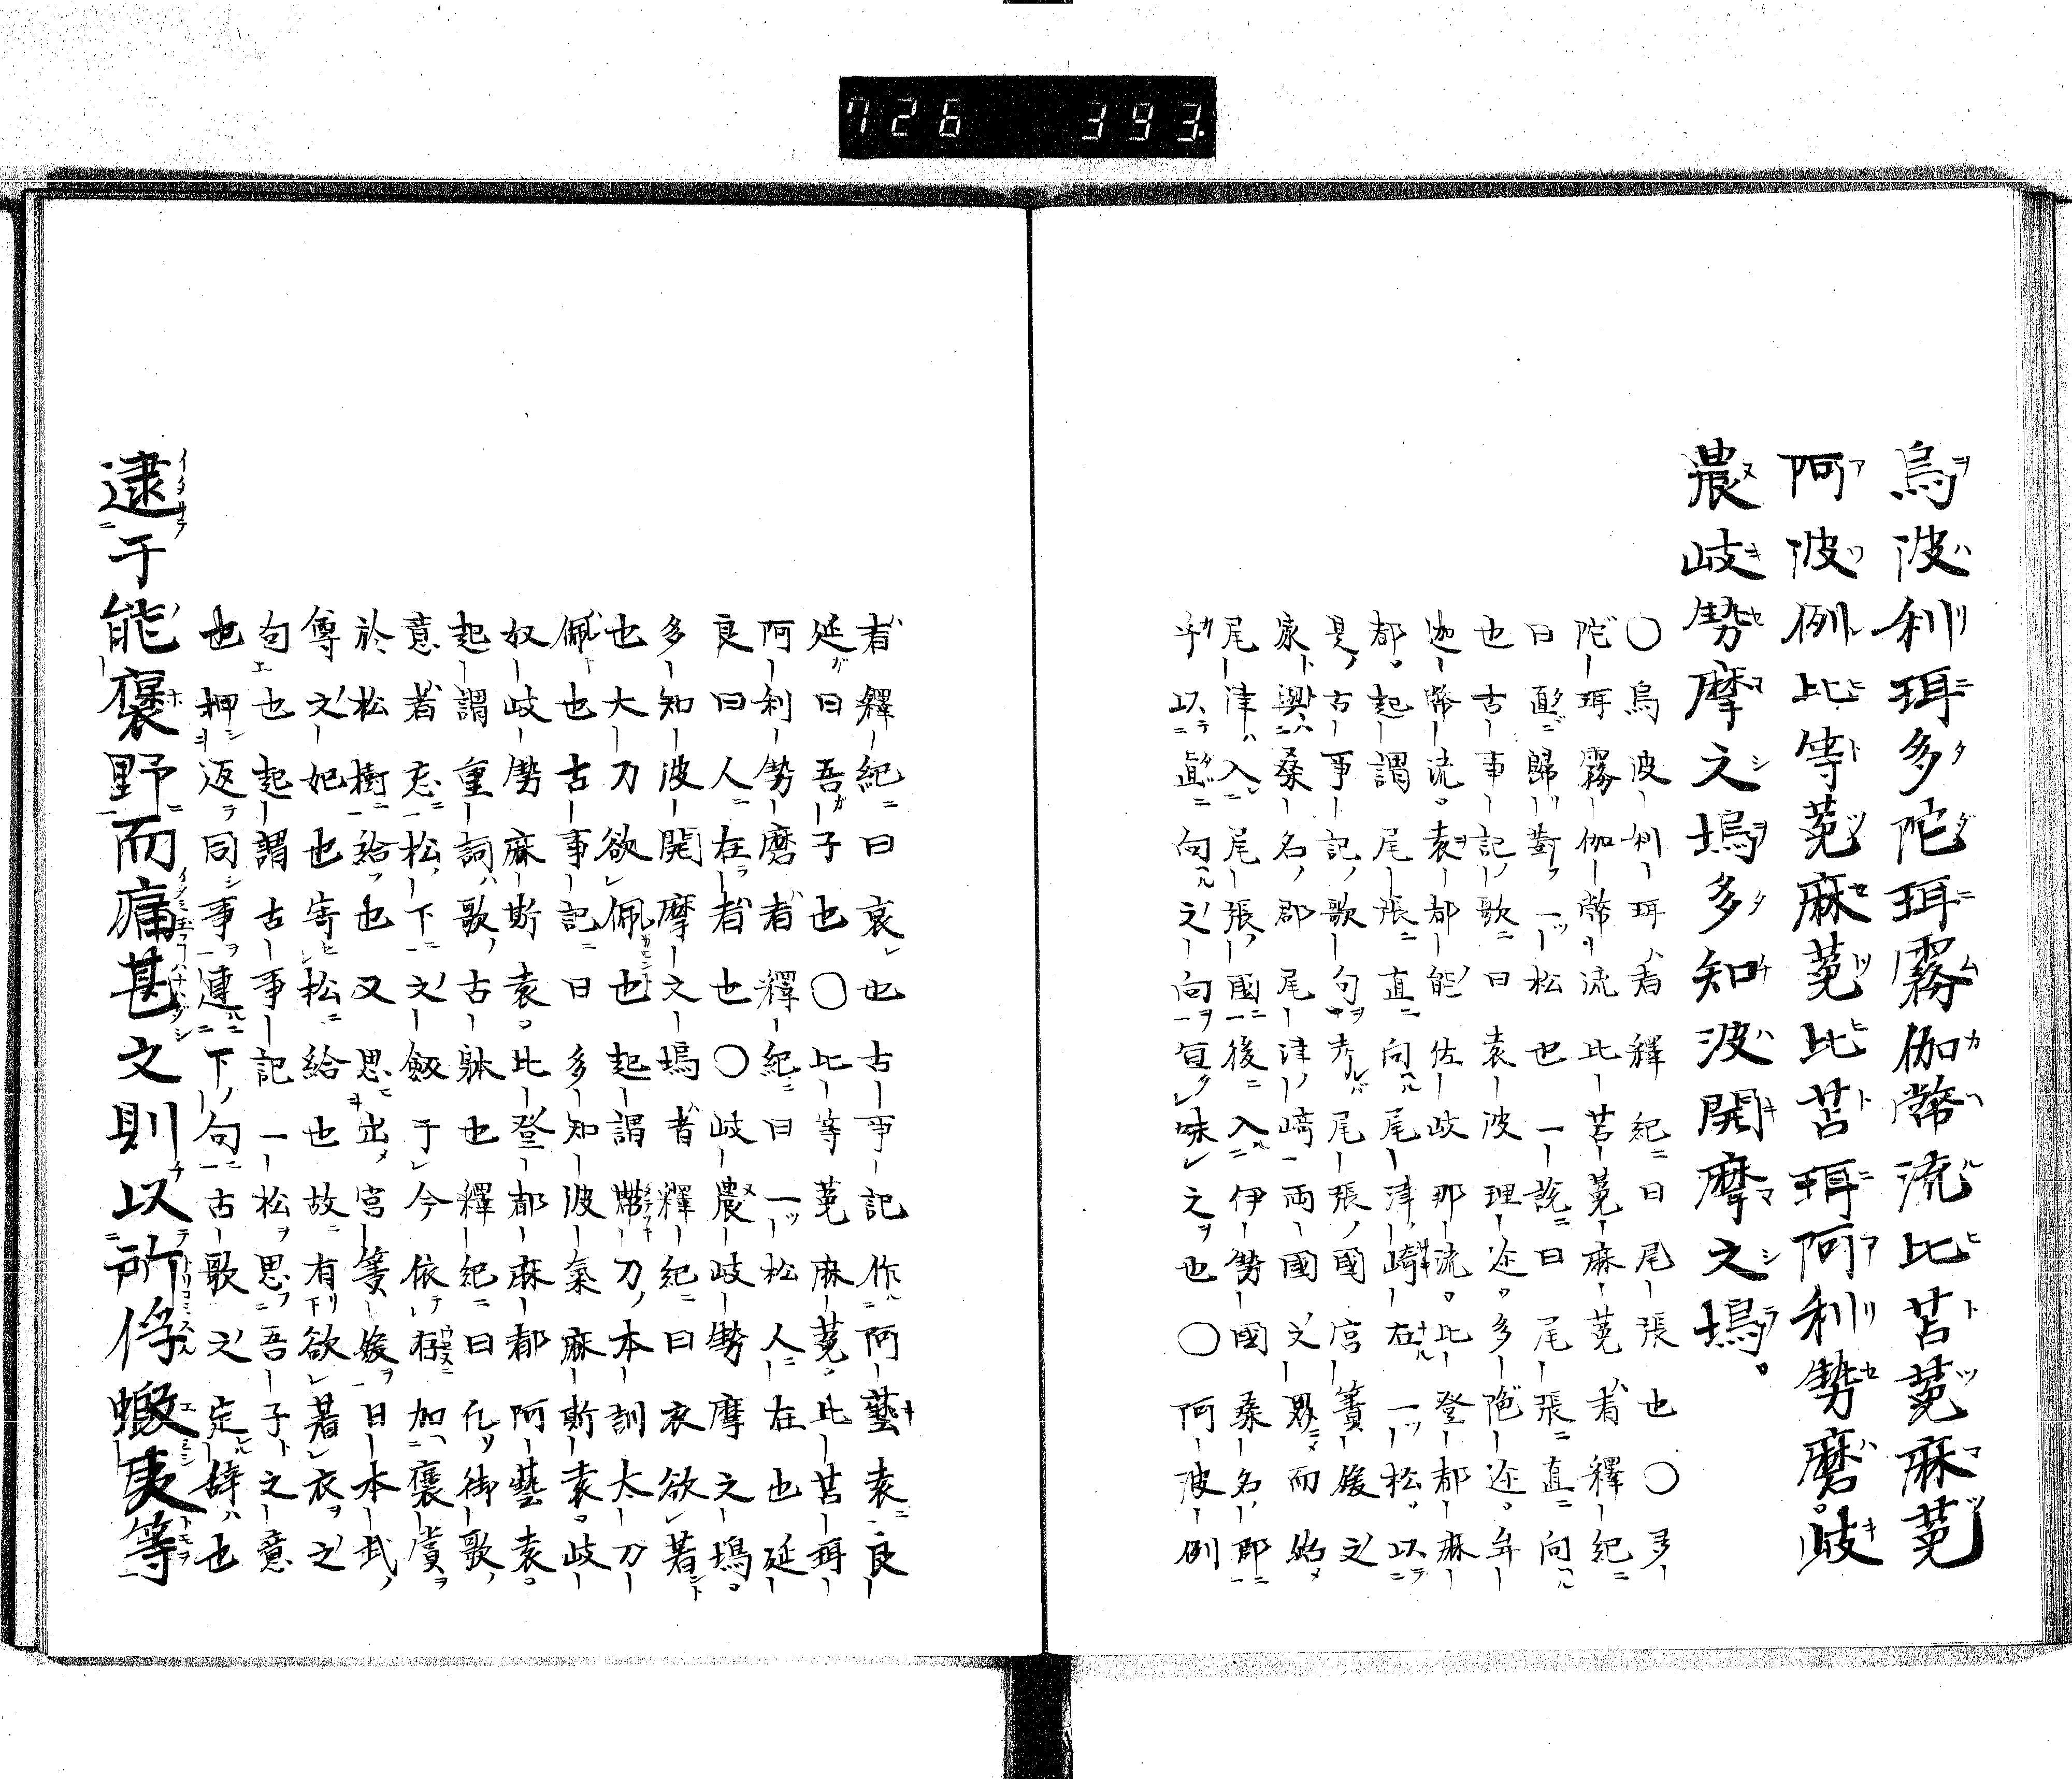 726 393.
烏波利珥多陀珥霧伽幣流比苫菟麻菟
阿波例比等菟麻菟比苫珥阿利勢磨。岐
農岐勢摩之塢多知波開摩之塢。
〇烏波利珥者釋紀曰尾張也〇多
陀珥霧伽幣流比苫菟麻菟者釋紀
曰直歸對一松也一說曰尾張直向
也古事記歌曰袁波理迩。多陁迩。牟
迦幣流。袁都能佐岐那流。比登都麻
都。起謂尾張直向尾津崎在一松以
是古事記歌句考尾張國宮簀媛之
家與桑名郡尾津崎兩國之界而始
尾津入尾張國後入伊勢國桑名郡
乎以直向之向宜味之也〇阿波例
者釋紀曰哀也古事記作阿藝袁良
延曰吾子也〇比等菟麻菟。比苫珥
阿利勢磨者釋紀曰一松人在也延
良曰人在者也〇岐農岐勢摩之塢。
多知波開摩之塢者釋紀曰衣欲著
也大刀欲佩也起謂帶刀本訓太刀
佩也古事記曰多知波氣麻斯袁。岐
奴岐勢麻斯袁。比登都麻都阿藝袁。
起謂重詞歌古躰也釋紀曰凡御歌
意者忘松下之劔于今依存加褒賞
於松樹給也又思出宮簀媛日本武
傳之妃也寄松給也故有欲著衣之
句也起謂古事記一松思吾子之意
也押返同事連下句古歌之定辞也
逮于能褒野而痛甚之則以所俘蝦夷等